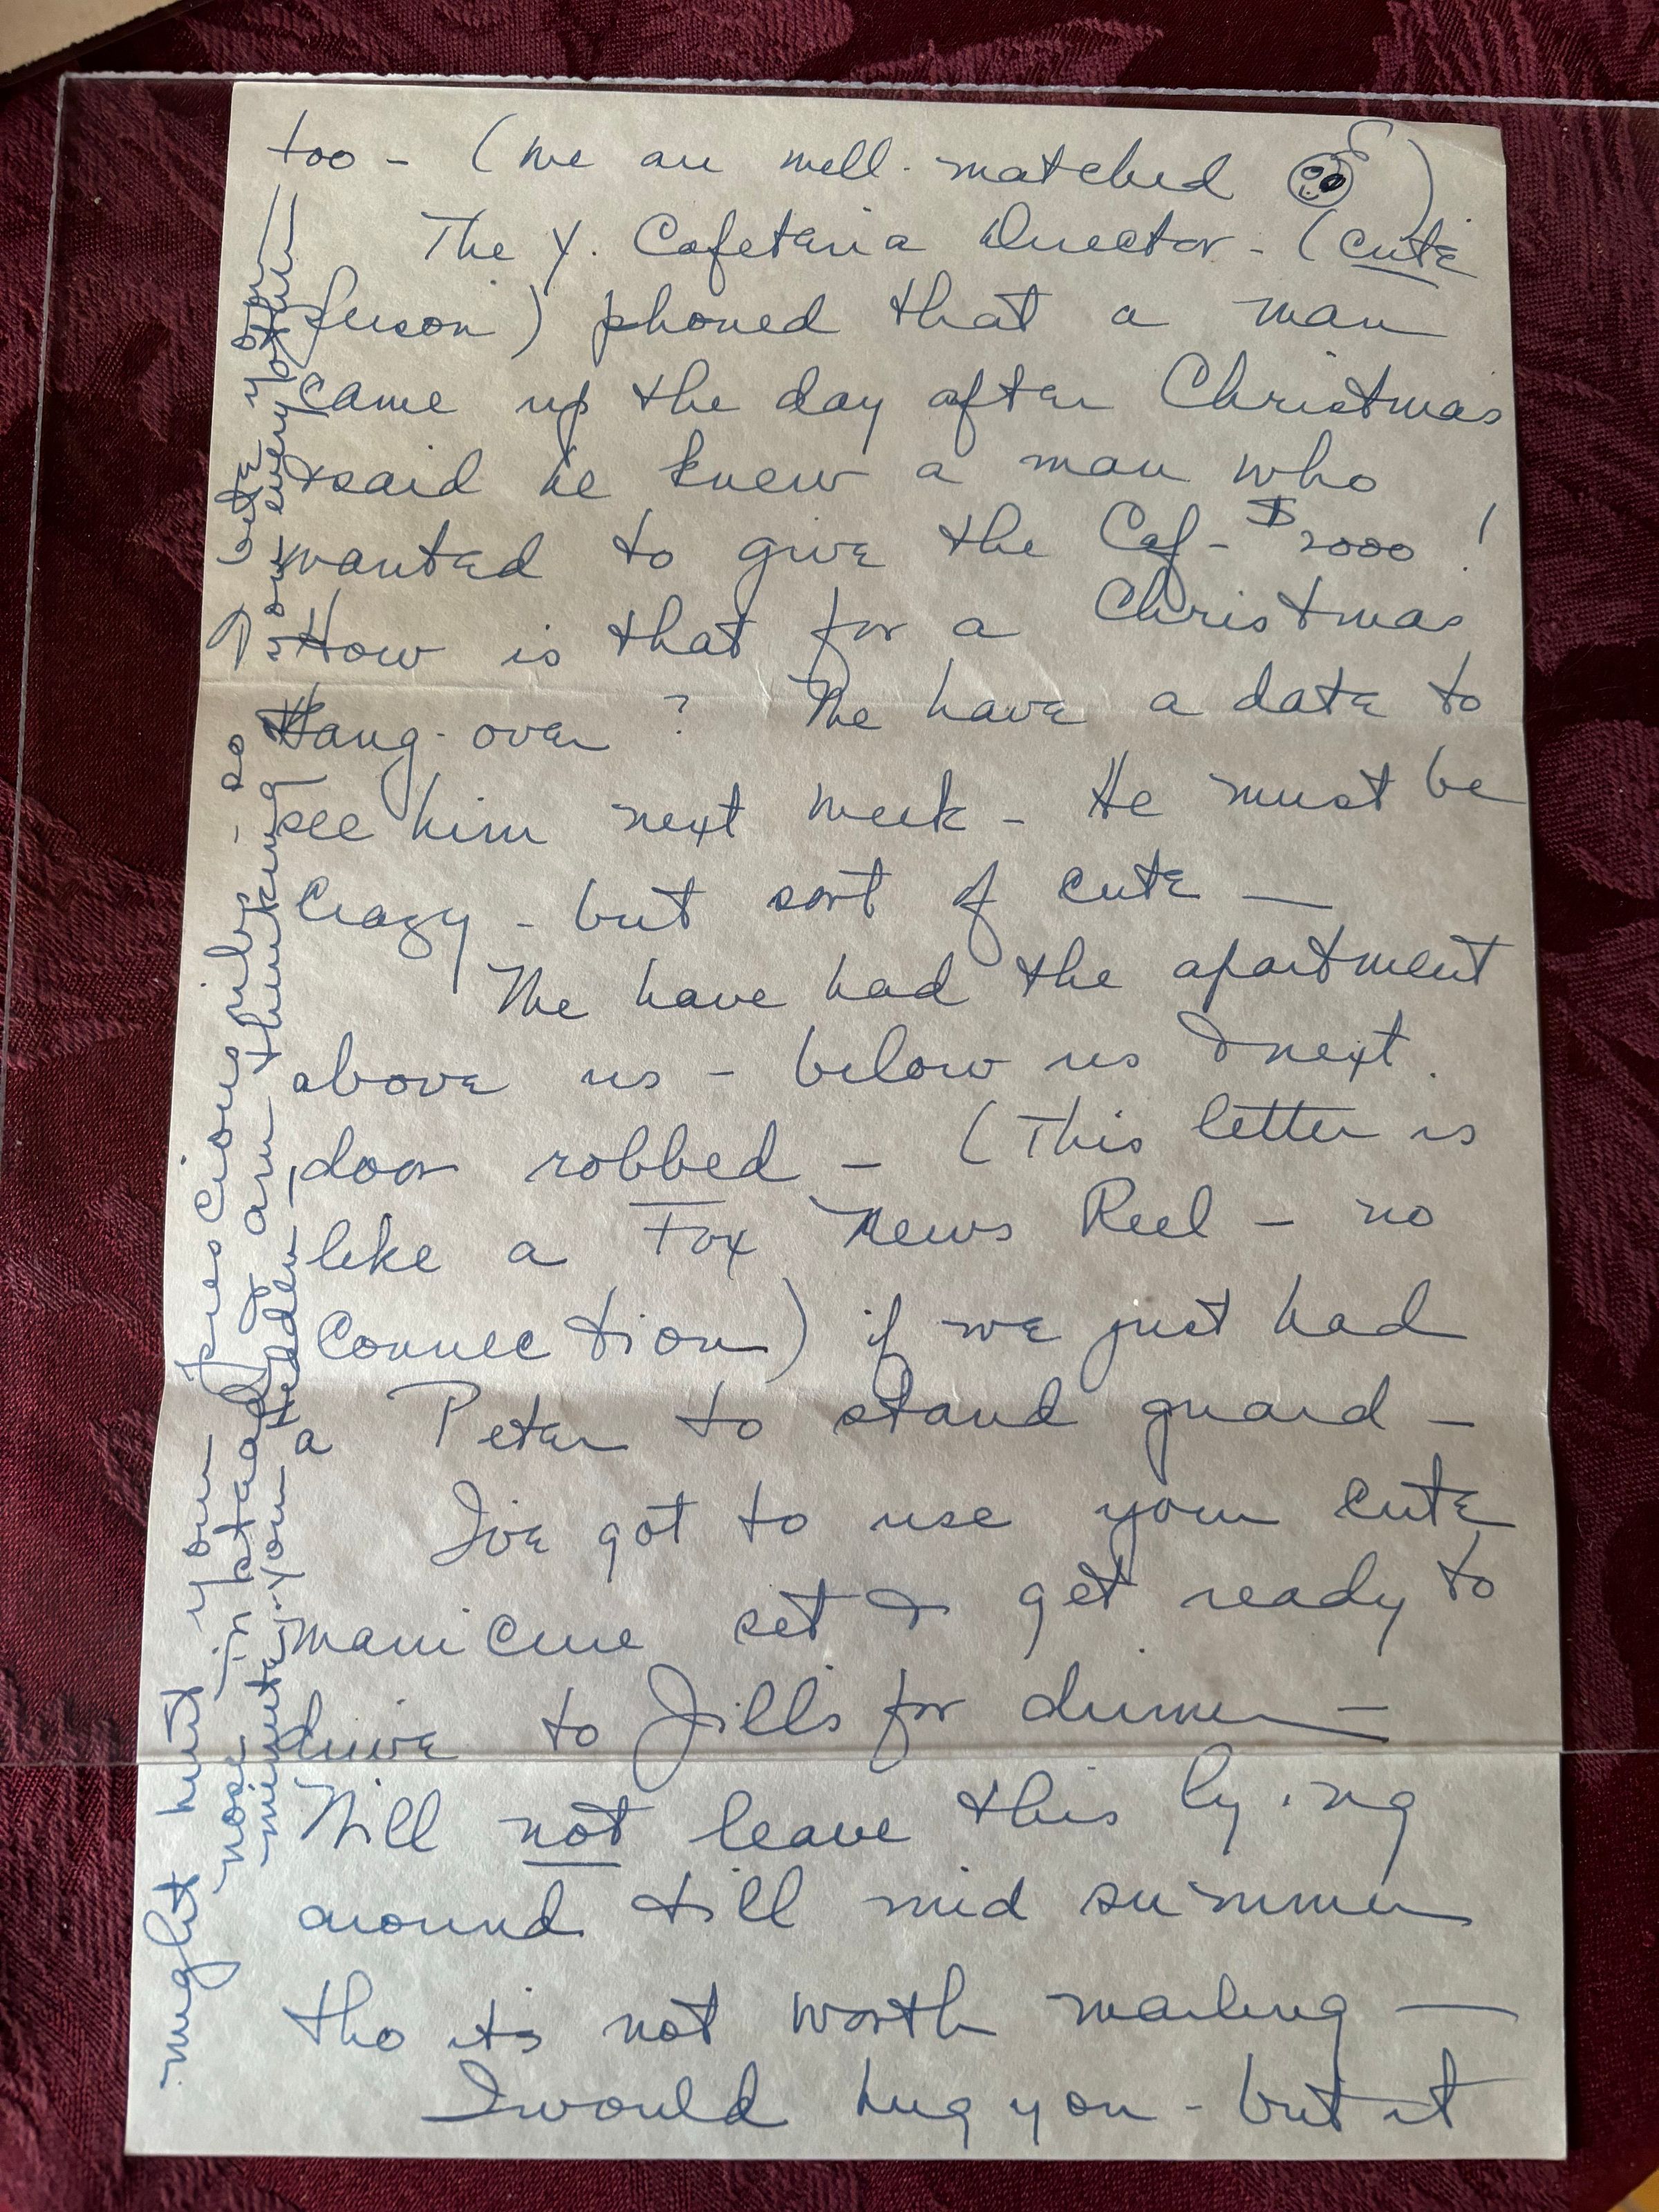 too - (we are well-matched )
The Y. Cafeteria Director - (cute
person) phoned that a man
came up the day after Christmas
& said he knew a man who
wanted to give the Caf - $2000 !
How is that for a Christmas
Hang-over ? We have a date to
see him next week - He must be
crazy - but sort of cute —
We have had the apartment
above us - below us & next.
door robbed - (This letter is
like a Fox News Reel - no
connection) if we just had
a Peter to stand guard -
I've got to use your cute
manicure set & get ready to
drive to Jills for dinner —
Will not leave this lying
around till mid summer
tho its not worth mailing —
I would hug you - but it
might hurt your prescious ribs - so I bite you on
nose instead I am thinking your every other
minute - you a